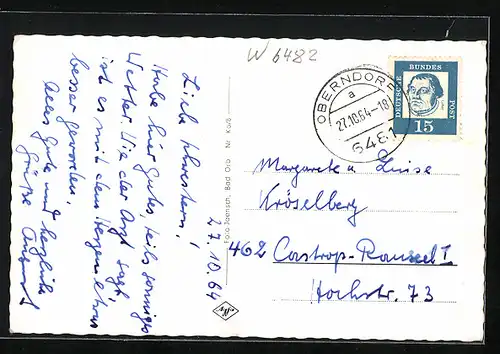 W 6482
Liebe Schwestern!
Habe hier gutes teils sonniges
Wetter. Wie der Arzt sagt,
ist es mit dem Herzen etwas
besser geworden.
Alles Gute und herzliche
Grüße August
27.10.64
Foto-Jaensch, Bad Orb Nr.
OBERNDORF
a
27.10.64-18
6481
DEUTSCHE BUNDES POST
15
Margarete u. Luise
Kröselberg
462 Castrop-Rauxel I
Hochstr. 73